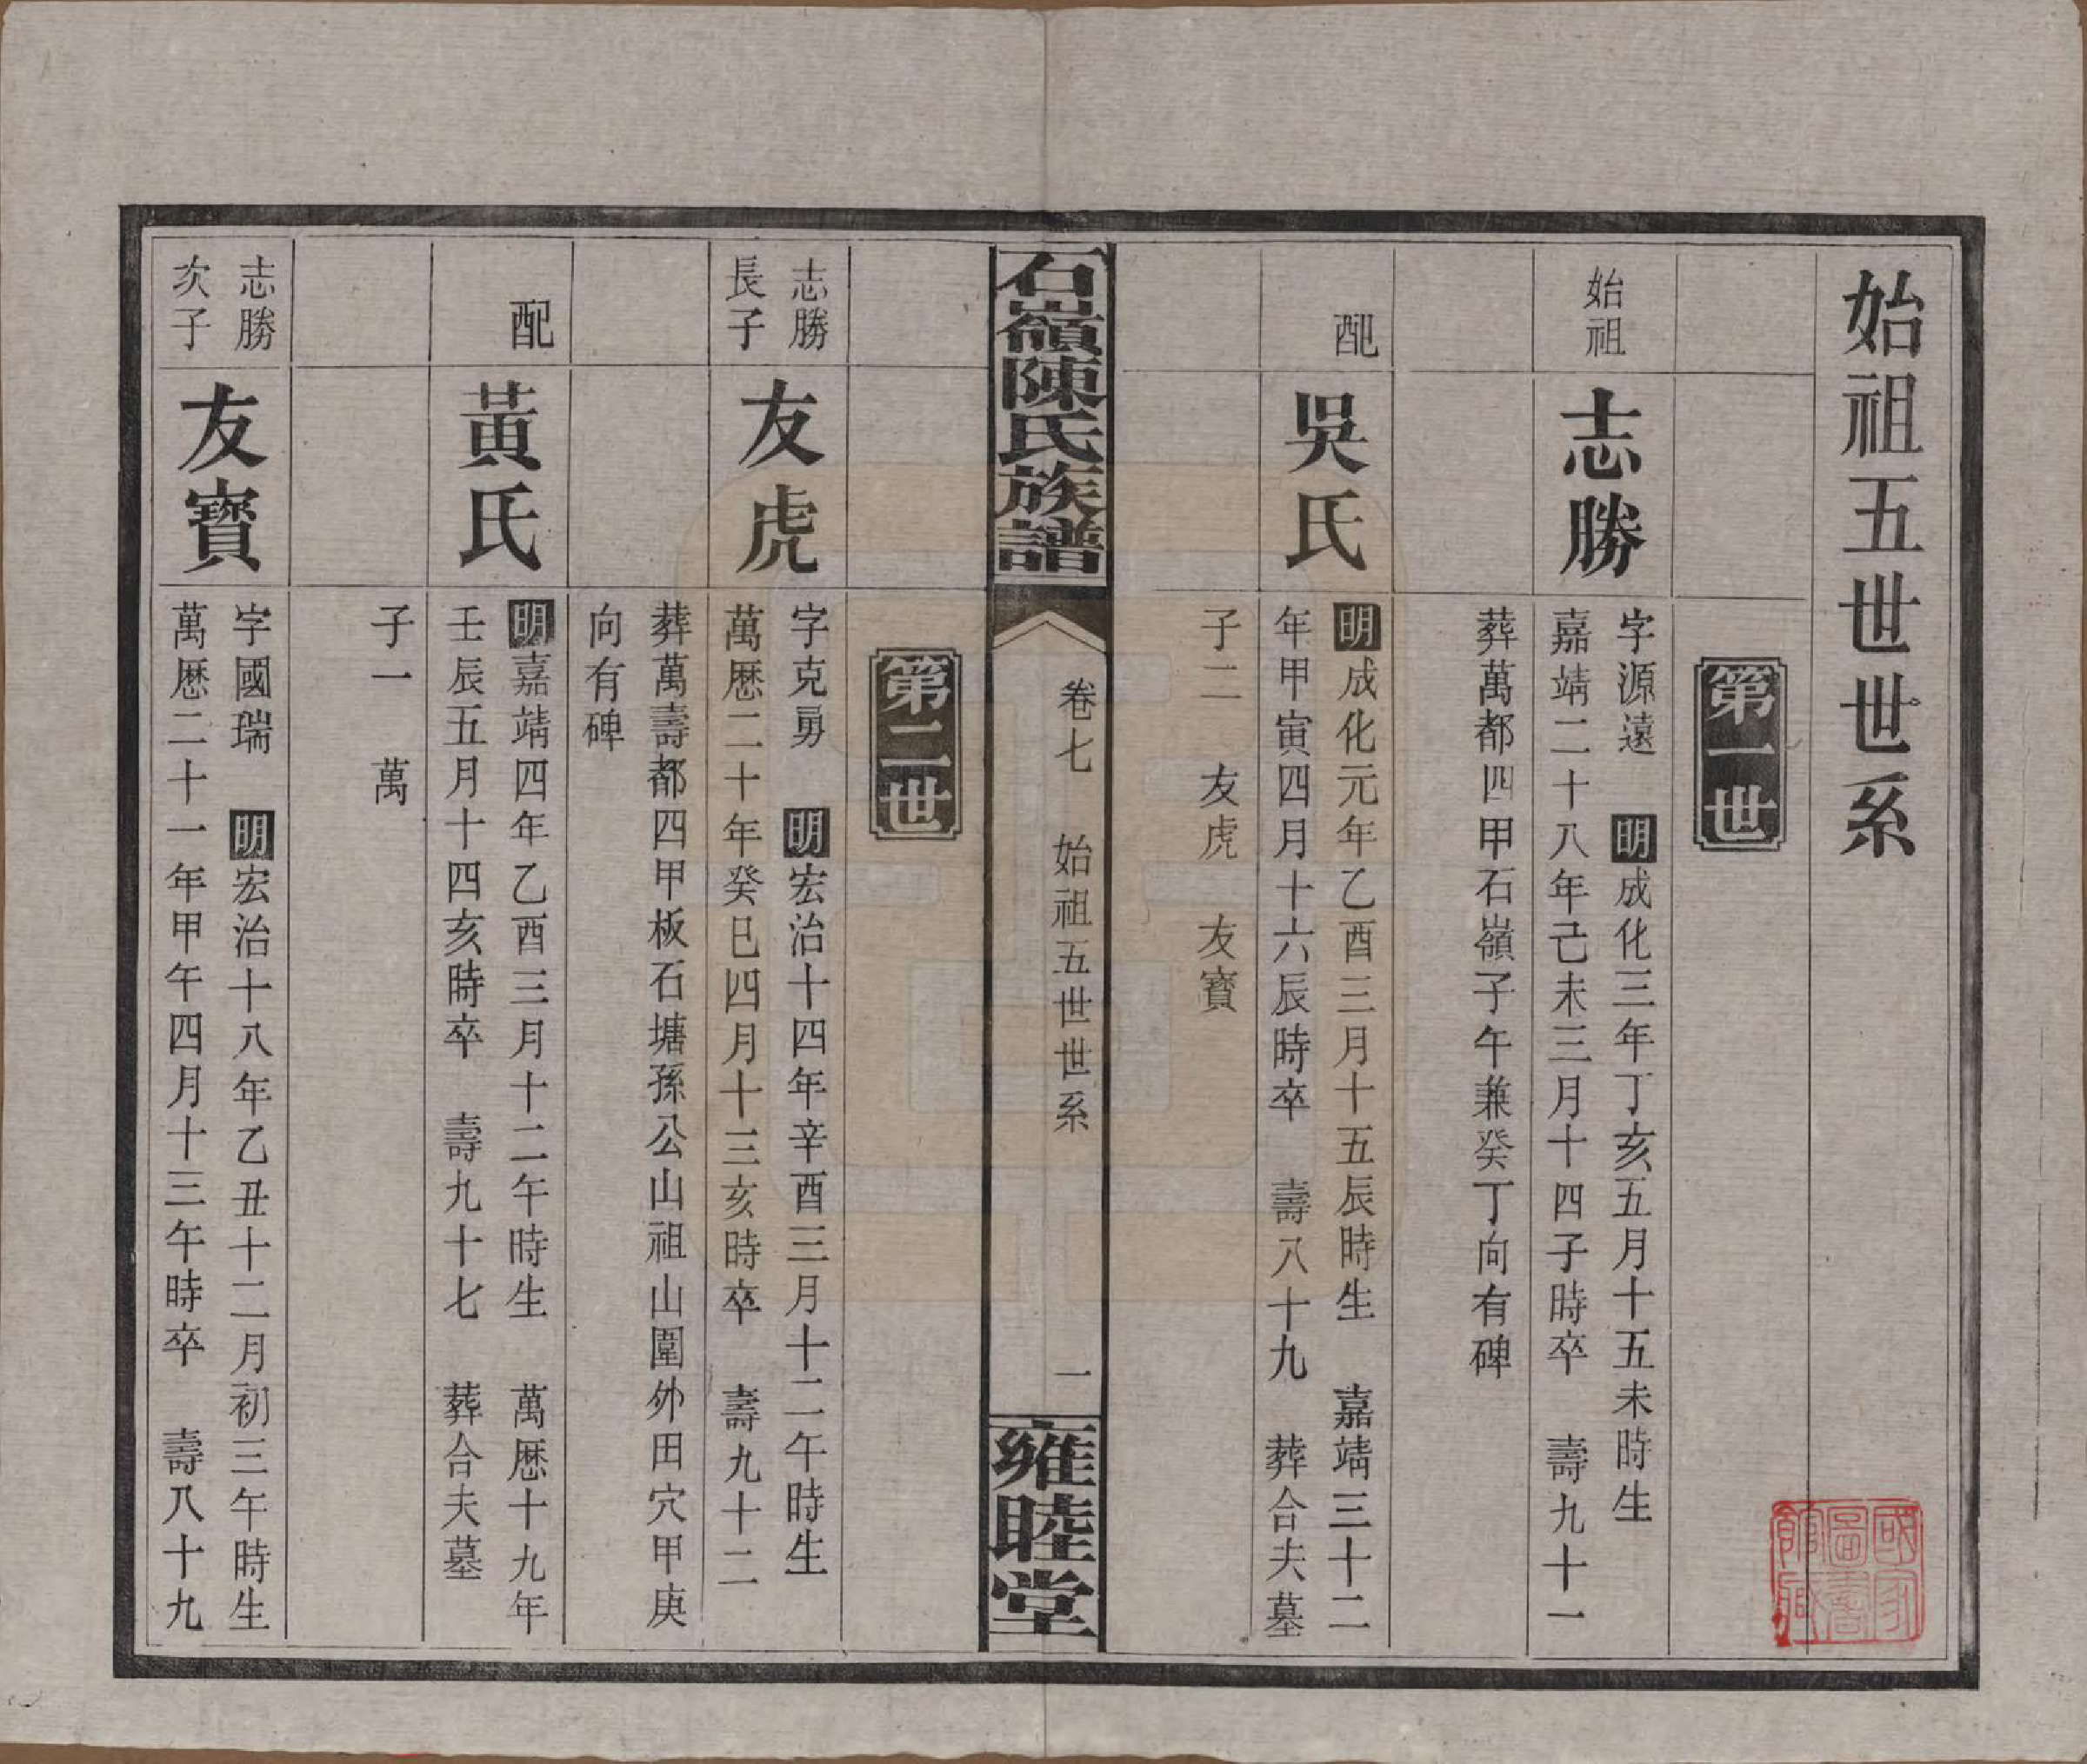 始祖五世世系
第一世
始祖
志勝
字源遠　明成化三年丁亥五月十五未時生
嘉靖二十八年己未三月十四子時卒　壽九十一
葬萬都四甲石嶺子午兼癸丁向有碑
配
吳氏
明成化元年乙酉三月十五辰時生　嘉靖三十二
年甲寅四月十六辰時卒　壽八十九　葬合夫墓
子二　友虎　友寶
石嶺陳氏族譜
卷七　始祖五世世系　一
雍睦堂
第二世
志勝
長子
友虎
字克勇　明宏治十四年辛酉三月十二午時生
萬厯二十年癸巳四月十三亥時卒　壽九十二
葬萬壽都四甲板石塘孫公山祖山圍外田穴甲庚
向有碑
配
黃氏
明嘉靖四年乙酉三月十二午時生　萬厯十九年
壬辰五月十四亥時卒　壽九十七　葬合夫墓
子一　萬
志勝
次子
友寶
字國瑞　明宏治十八年乙丑十二月初三午時生
萬厯二十一年甲午四月十三午時卒　壽八十九
國家
圖書
館藏